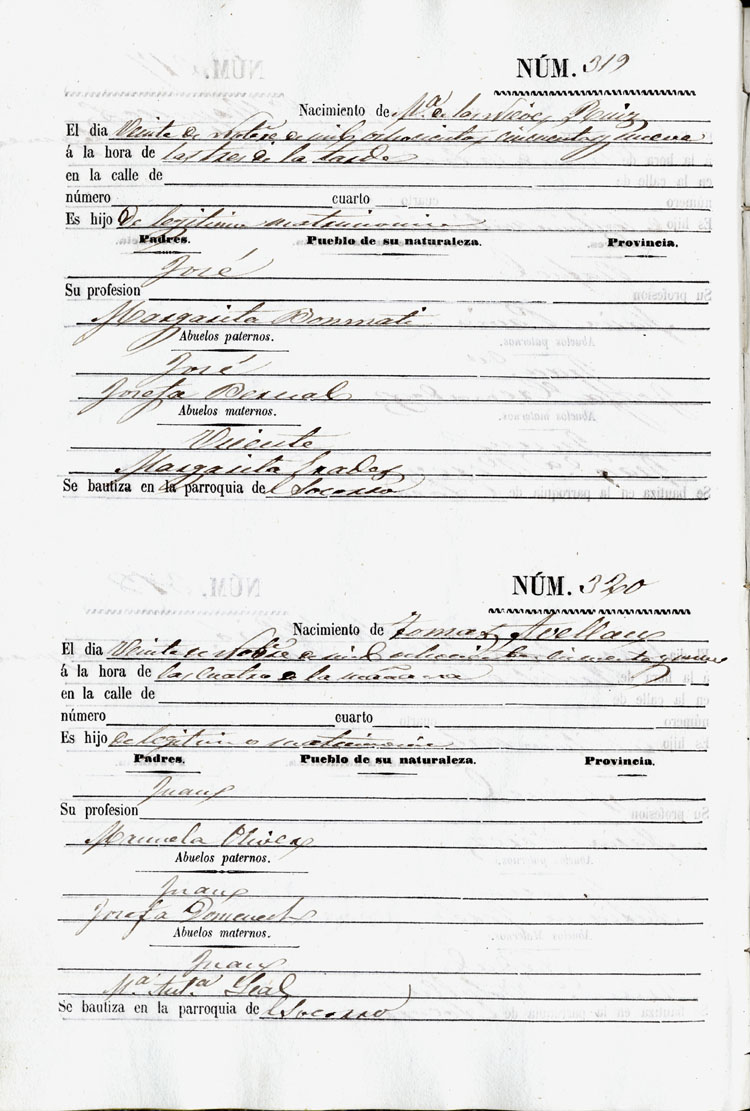 NÚM. 319
Nacimiento de Mª de las Ruiz
El dia Veinte de Novbre. de mil ochocientos cincuenta y nueve
á la hora de las tres de la tarde
en la calle de
número cuarto
Es hijo de legitimo matrimonio
Padres. Pueblo de su naturaleza. Provincia.
José
Su profesion
Margarita Bonmati
Abuelos paternos.
José
Josefa Bernal
Abuelos maternos.
Vicente
Margarita
Se bautiza en la parroquia del Socorro
NÚM. 320
Nacimiento de Tomas Avellan
El dia Veinte de Nobre de mil ochocientos cincuenta y nueve
á la hora de las cuatro de la mañana
en la calle de
número cuarto
Es hijo de legitimo matrimonio
Padres. Pueblo de su naturaleza. Provincia.
Juan
Su profesion
Manuela Oliver
Abuelos paternos.
Juan
Josefa Domenech
Abuelos maternos.
Juan
Mª Antª Leal
Se bautiza en la parroquia de el Socorro